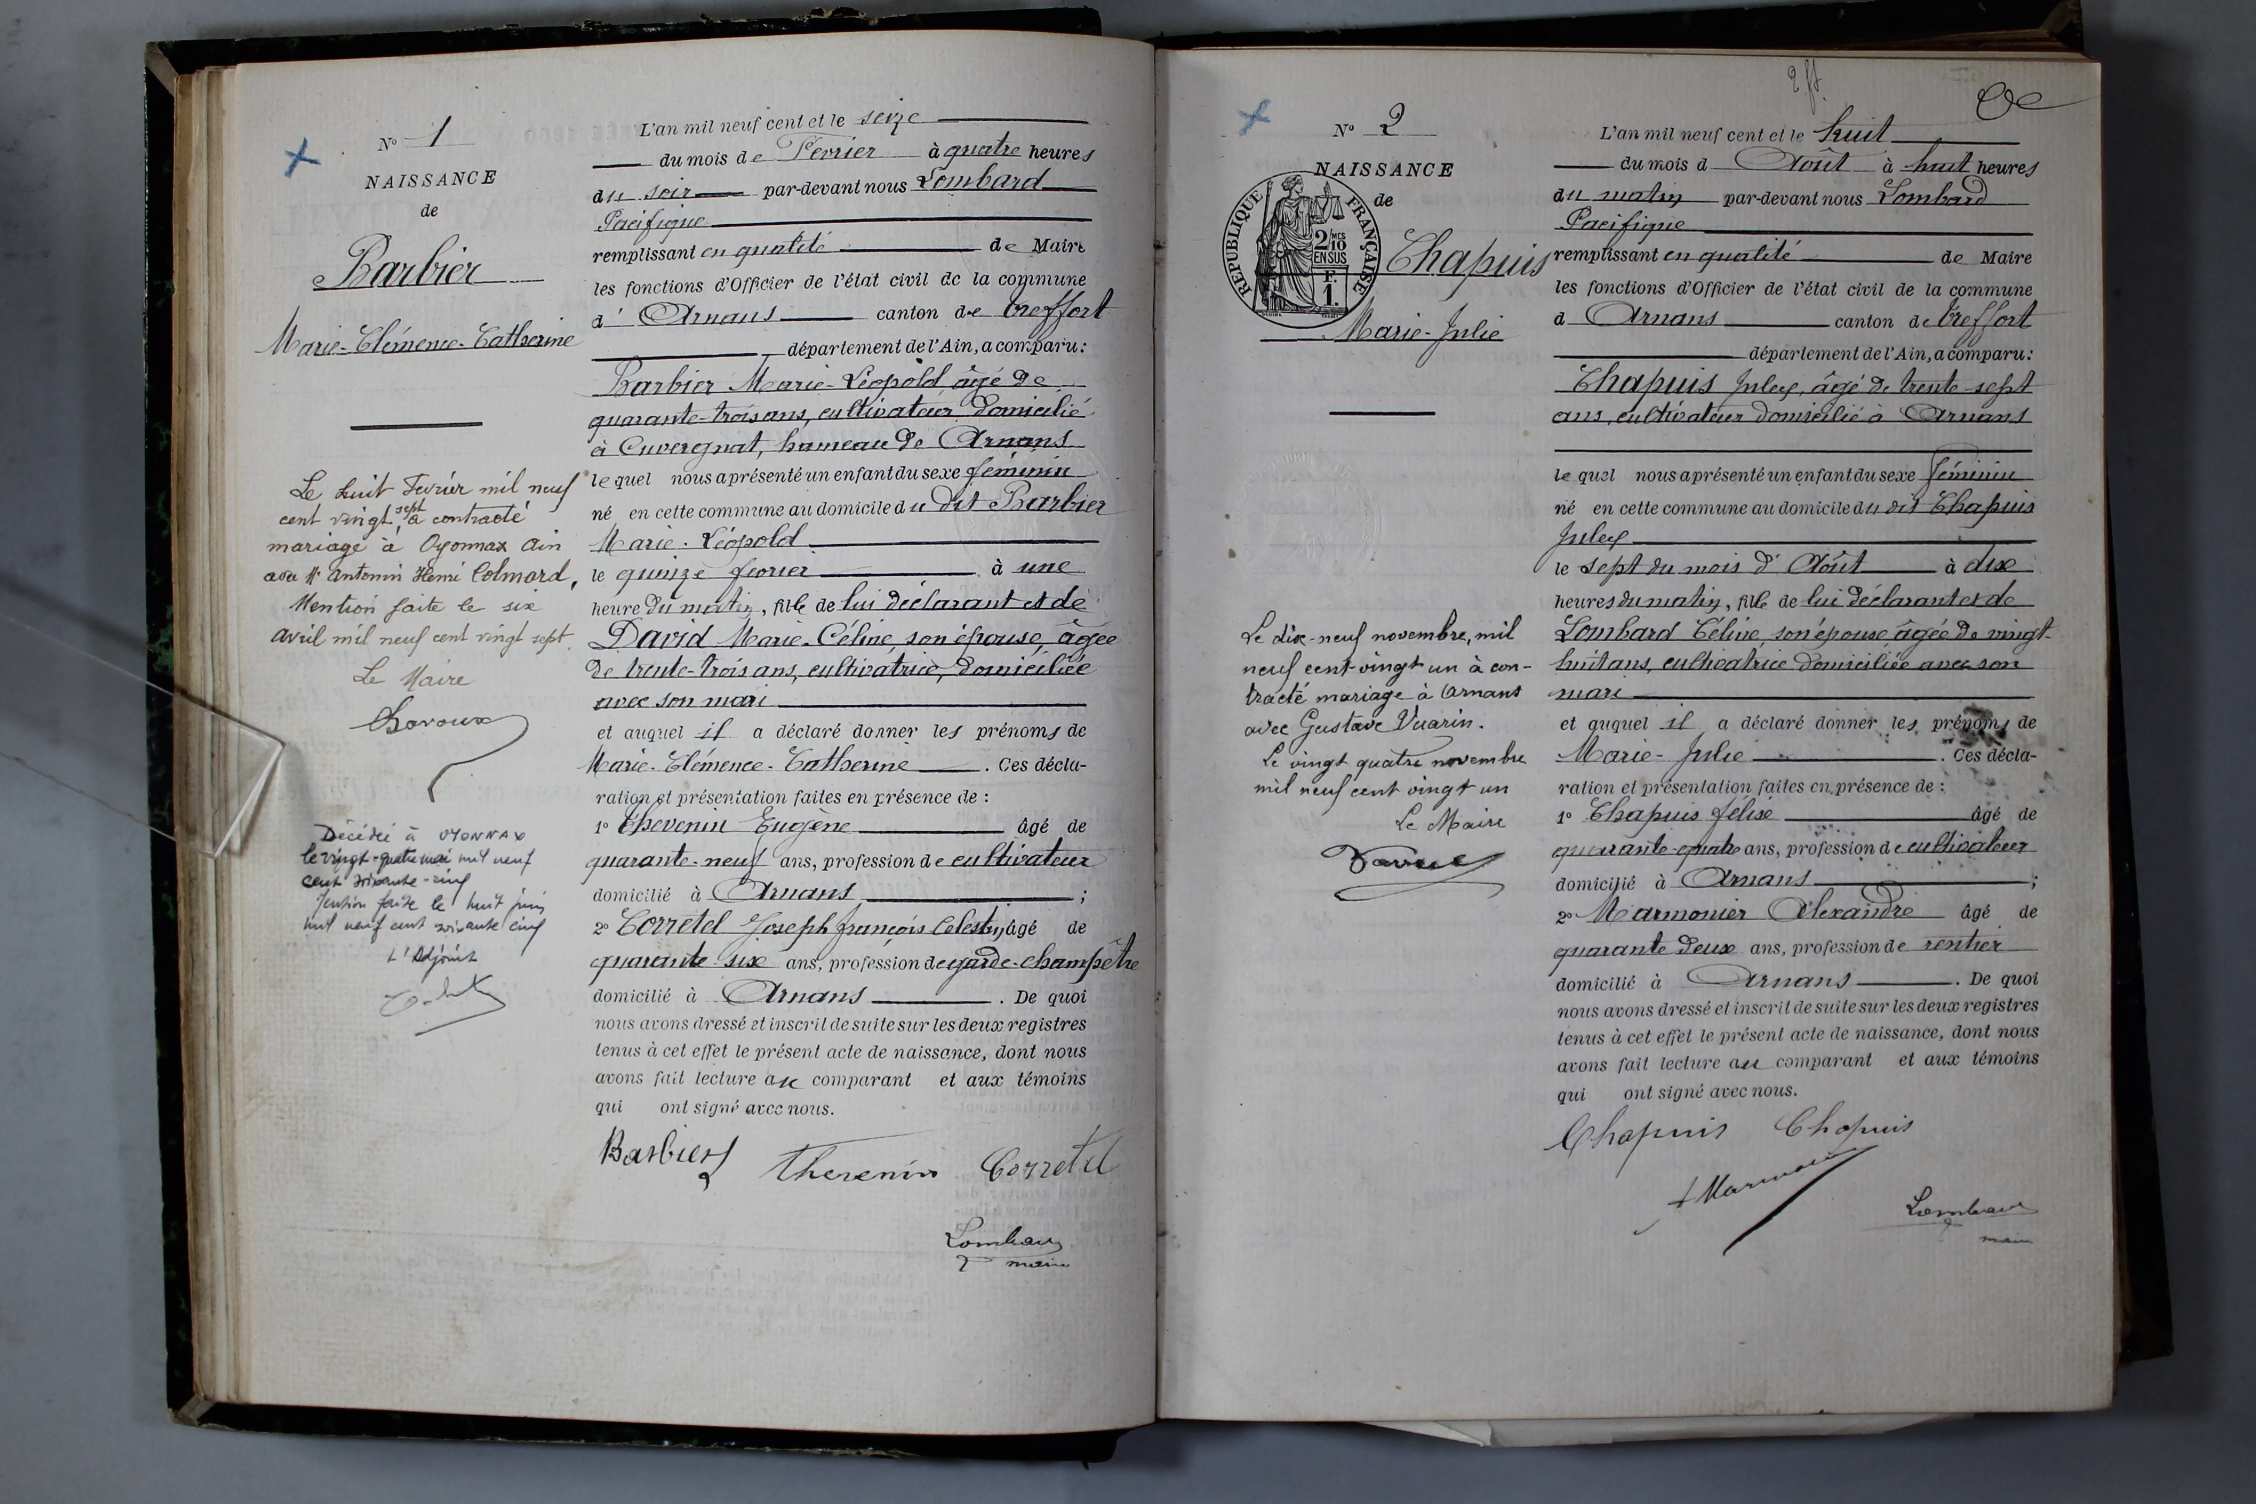 N° 1
NAISSANCE
de
Barbier
Marie-Clémence-Catherine
Le huit Fevrier mil neuf
cent vingt sept a contracté
mariage à Oyonnax Ain
avec Mr Antonin Henri Colmard,
Mention faite le six
avril mil neuf cent vingt sept.
Le Maire
Décédée à OYONNAX
le vingt-quatre mai mil neuf
cent soixante-cinq
Mention faite le huit juin
mil neuf cent soixante cinq
L'Adjoint
L'an mil neuf cent et le seize
du mois de Fevrier à quatre heures
du soir par-devant nous Lombard
Pacifique
remplissant en qualité de Maire
les fonctions d'Officier de l'état civil de la commune
d' Arnans canton de Treffort
département de l'Ain, a comparu:
Barbier Marie-Léopold âgé de
quarante-trois ans, cultivateur domicilié
à Cuvergnat, hameau de Arnans
le quel nous a présenté un enfant du sexe féminin
né en cette commune au domicile du dit Barbier
Marie-Léopold
le quinze fevrier à une
heure du matin, fille de lui déclarant et de
David Marie-Céline, son épouse, âgée
de trente-trois ans, cultivatrice, domiciliée
avec son mari
et auquel il a déclaré donner les prénoms de
Marie-Clémence-Catherine. Ces décla-
ration et présentation faites en présence de :
1° Thevenin Eugène âgé de
quarante-neuf ans, profession de cultivateur
domicilié à Arnans ;
2° Corretel Joseph François Celestin, âgé de
quarante-six ans, profession de garde-champêtre
domicilié à Arnans. De quoi
nous avons dressé et inscrit de suite sur les deux registres
tenus à cet effet le présent acte de naissance, dont nous
avons fait lecture au comparant et aux témoins
qui ont signé avec nous.
Barbier Thevenin Corretel
Lombard
maire
2 ft.
N° 2
NAISSANCE
de
RÉPUBLIQUE FRANÇAISE
2/10 MES
EN SUS
F.
1.
Chapuis
Marie-Julie
Le dix-neuf novembre, mil
neuf cent-vingt un à con-
tracté mariage à Arnans
avec Gustave Vuarin.
Le vingt quatre novembre
mil neuf cent vingt un
Le Maire
L'an mil neuf cent et le huit
du mois d Août à huit heures
du matin par-devant nous Lombard
Pacifique
remplissant en qualité de Maire
les fonctions d'Officier de l'état civil de la commune
d Arnans canton de Treffort
département de l'Ain, a comparu:
Chapuis Juley, âgé de trente-sept
ans, cultivateur domicilié à Arnans
le quel nous a présenté un enfant du sexe féminin
né en cette commune au domicile du dit Chapuis
Juley
le sept du mois d' Août à dix
heures du matin, fille de lui déclarant et de
Lombard Céline, son épouse âgée de vingt-
huit ans, cultivatrice domiciliée avec son
mari
et auquel il a déclaré donner les prénoms de
Marie-Julie. Ces décla-
ration et présentation faites en présence de :
1° Chapuis Félix âgé de
quarante-quatre ans, profession de cultivateur
domicilié à Arnans ;
2° Marmonier Alexandre âgé de
quarante deux ans, profession de rentier
domicilié à Arnans. De quoi
nous avons dressé et inscrit de suite sur les deux registres
tenus à cet effet le présent acte de naissance, dont nous
avons fait lecture au comparant et aux témoins
qui ont signé avec nous.
Chapuis Chapuis
Lombard
maire